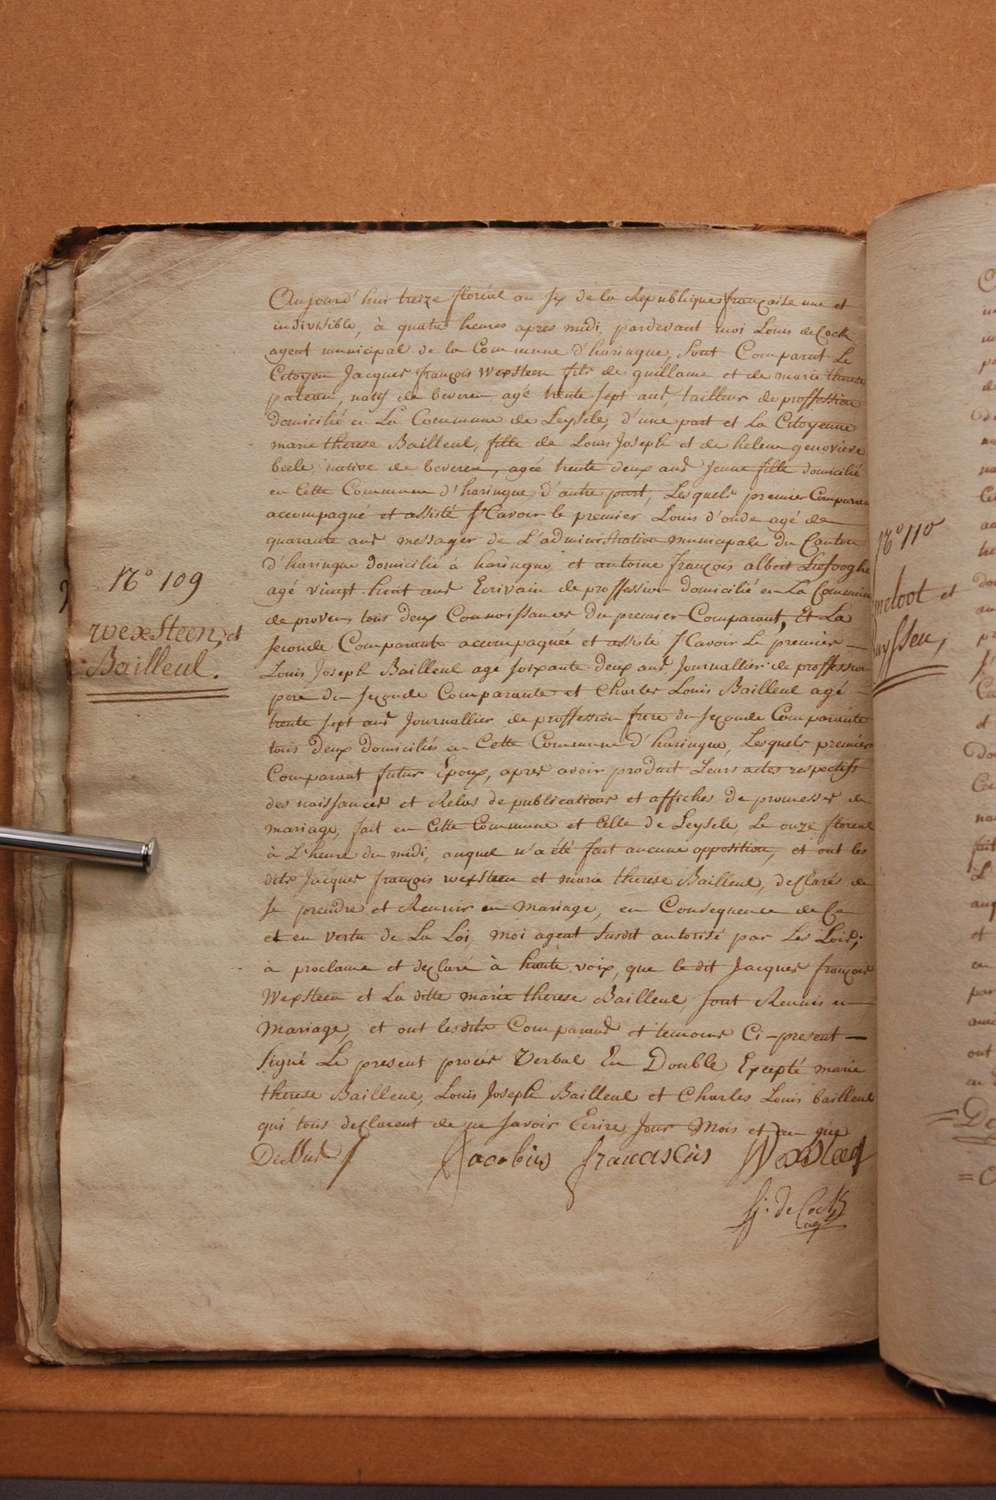 Aujourd'hui treize floréal an six de la Republique française une et
indivisible, à quatre heures apres midi, pardevant moi Louis de Cock
agent municipal de la Commune d'haringue, Sont Comparut Le
Citoyen Jacques françois Wexsteen fils de guillame et de marie therese
natif de beveren, agé trente sept ans, tailleur de proffession
domicilié en La Commune de Leysele, d'une part et La Citoyenne
marie therese Bailleul, fille de Louis Joseph et de helene genovieve
beele, native de beveren, agée trente deux ans Jeune fille domicilié
en Cette Commune d'haringue, d'autre part, Lesquels premier Comparant
accompagné et assisté sçavoir le premier Louis d'onde agé de
quarante ans messager de L'administration municipale du Canton
d'haringue domicilié à haringue, et antoine françois albert
agé vingt huit ans Ecrivain de proffession domicilié en La Commune
de proven, tous deux Connoissances du premier Comparant, Et La
seconde Comparante accompagnée et assité sçavoir Le premier
Louis Joseph Bailleul agé soixante deux ans Journallier de proffession
pere du seconde Comparante et Charles Louis Bailleul agé
trente sept ans Journallier de proffession frere du seconde Comparante
tous deux domiciliés en Cette Commune d'haringue, Lesquels premier
Comparant futur Epoux, apres avoir produit Leurs actes respectifs
des naissances et Relas de publications et affiches de promesses de
mariage, fait en Cette Commune et Celle de Leysele, Le onze floreal
à L'heure du midi, auquel n'a été fait aucune opposition, et ont les
dits Jacques françois wexsteen et marie therese Bailleul, declarés de
se prendre et Reunir en Mariage, en Consequence de Ca
et en vertu de La Loi, moi agent susdit autorisé par Les Lois;
à proclame et declaré à haute voix, que le dit Jacques françois
Wexsteen et La ditte marie therese Bailleul, sont Reunis en
Mariage, et ont lesdits Comparans et temoins Ci-present
signé Le present proces Verbal En Double Excepté marie
therese Bailleul, Louis Joseph Bailleul et Charles Louis bailleul
qui tous declarent de ne savoir Ecrire Jour Mois et an que
Dessus
Jacobus franciscus Wexsteen
de Cock
agt
N° 109
wexsteen, et
Bailleul.
N° 110
meloot et